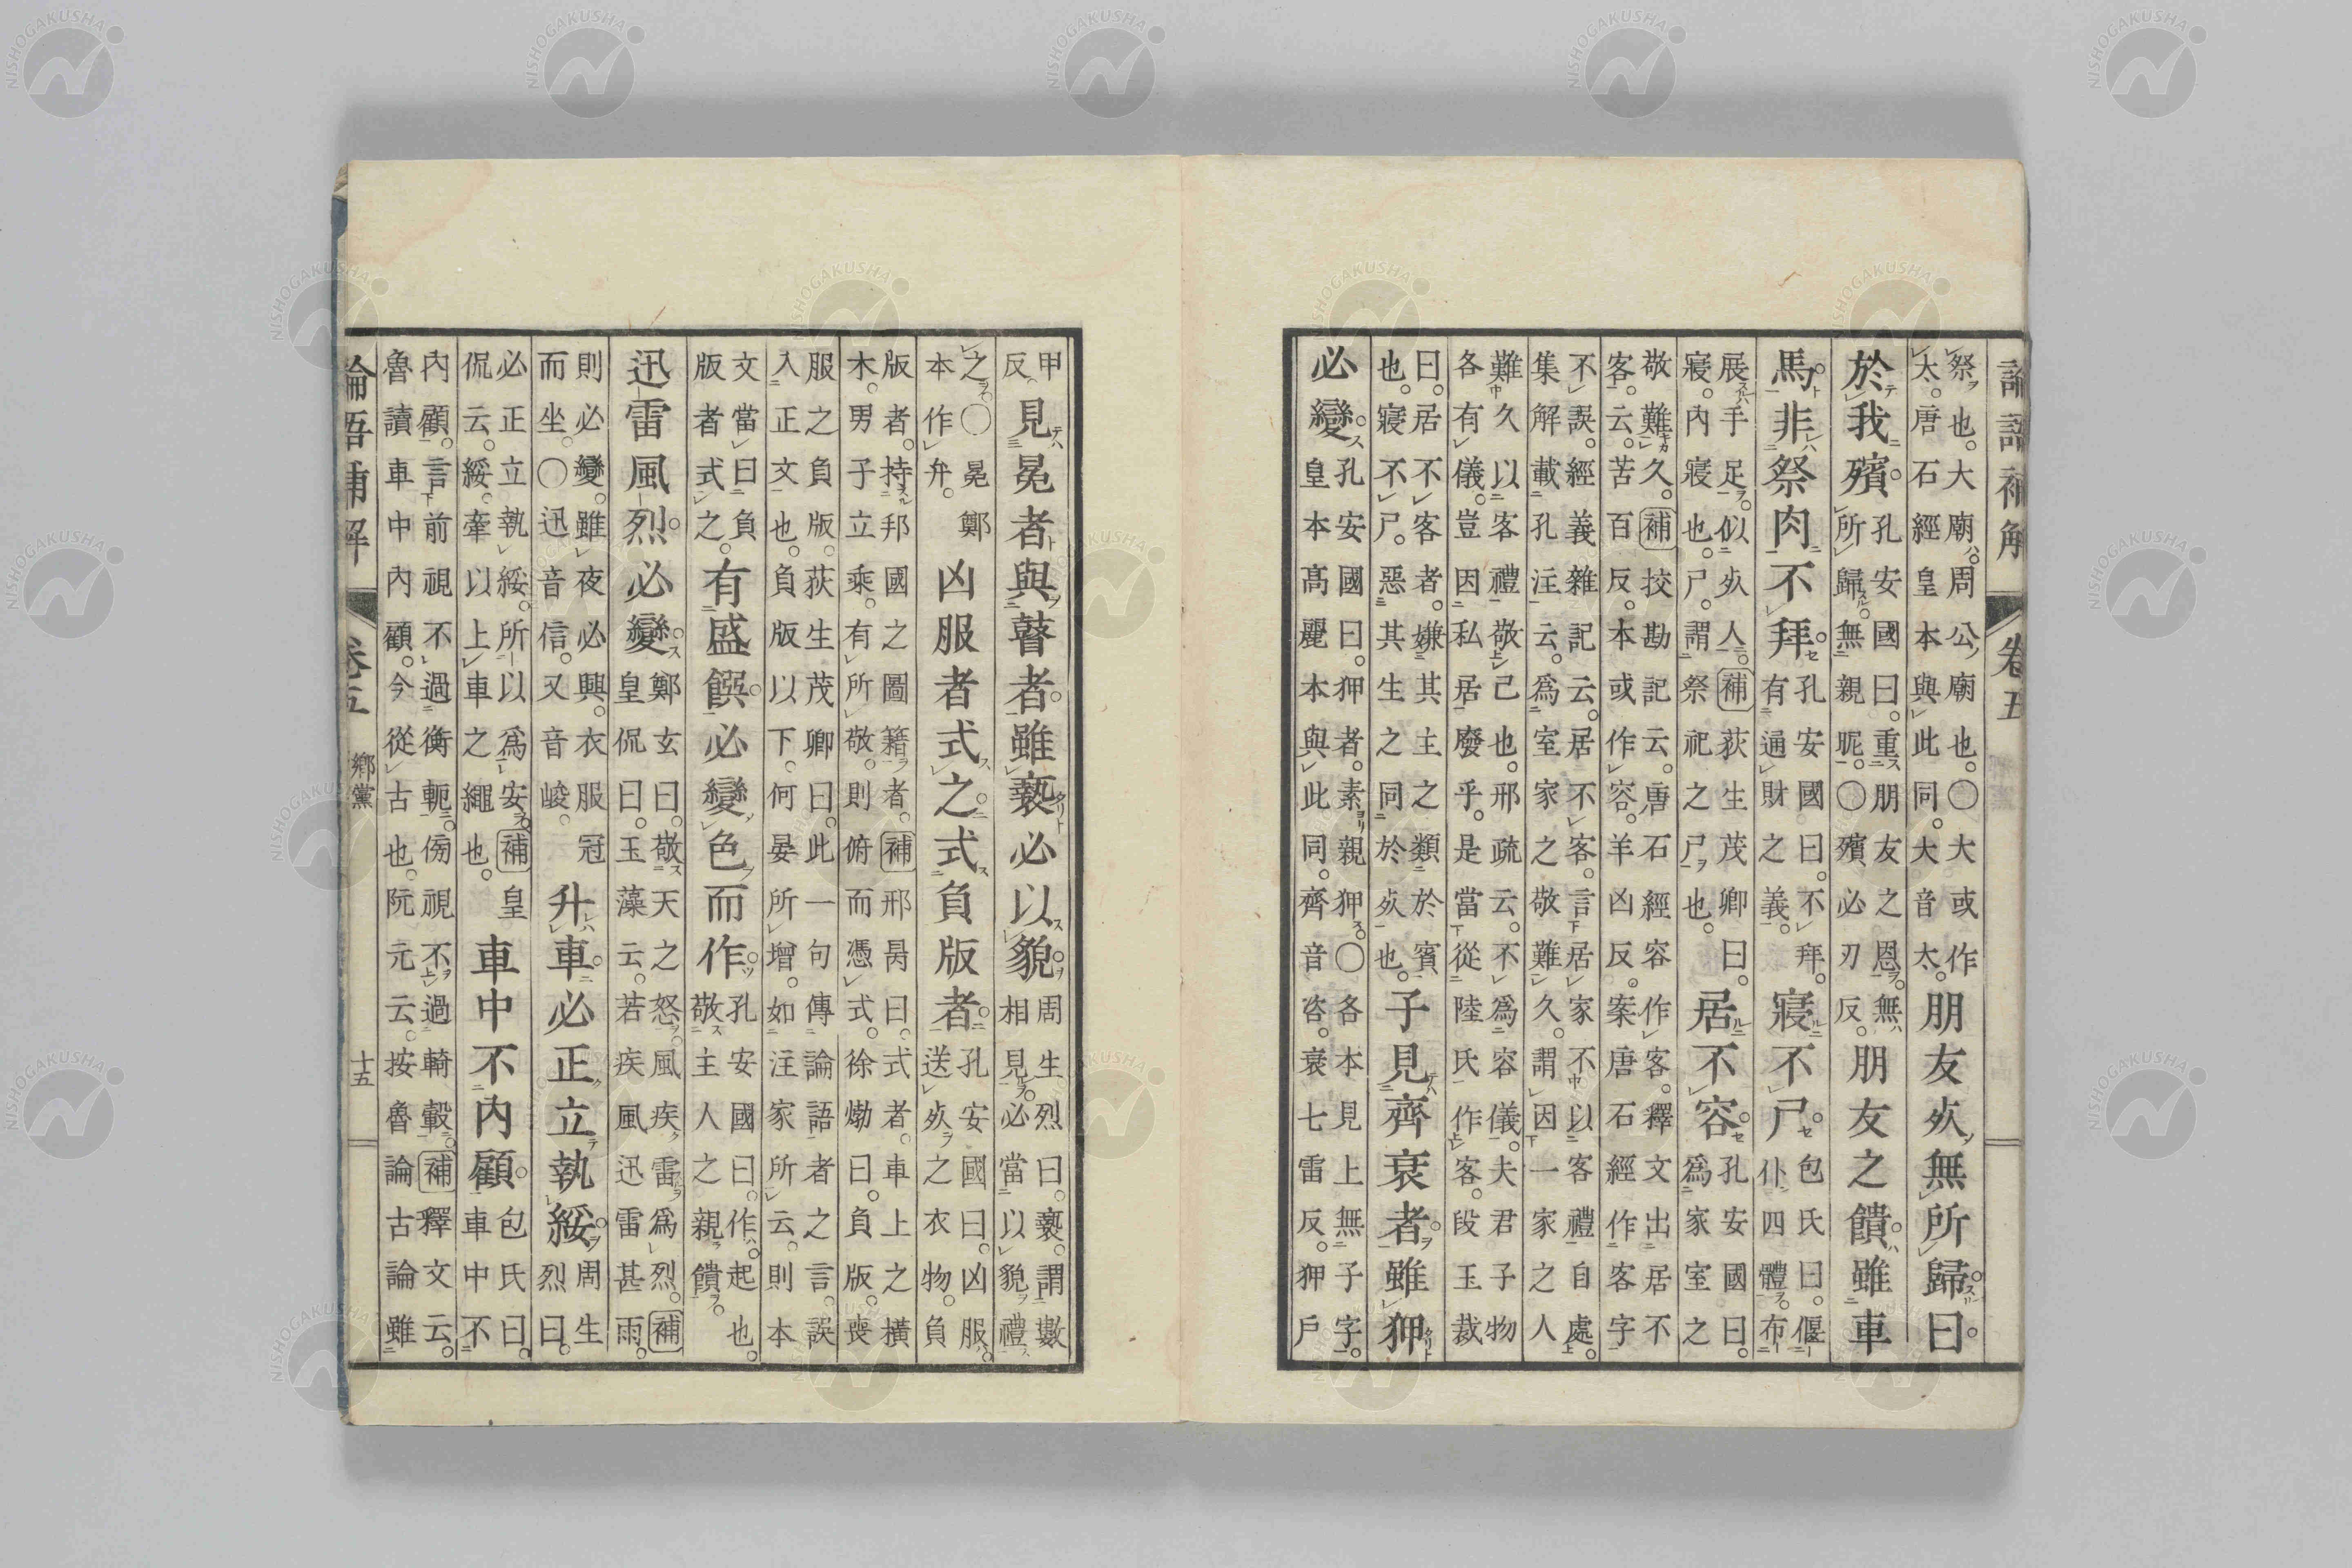 論語補解 卷五
祭也。大廟。周公廟也。〇大或作
太。唐石經皇本與此同。大音太。
朋友死無所歸曰
於我殯
孔安國曰。重朋友之恩。無
所歸。無親昵。〇殯必刃反。
朋友之饋雖車
馬非祭肉不拜
孔安國曰。不拜。
有通財之義。
寢不尸
包氏曰。偃
仆四體。布
展手足。似死人。補荻生茂卿曰。
寢。內寢也。尸。謂祭祀之尸也。
居不容
孔安國曰。
爲家室之
敬難久。補挍勘記云。唐石經容作客。釋文出居不
客。云。苦百反。本或作容。羊凶反。案唐石經作客字
不誤。經義雜記云。居不客。言居家不以客禮自處。
集解載孔注云。爲室家之敬難久。謂因一家之人
難久以客禮敬己也。邢疏云。不爲容儀。夫君子物
各有儀。豈因私居廢乎。是當從陸氏作客。段玉裁
曰。居不客者。嫌其主之類於賓
也。寢不尸。惡其生之同於死也。
子見齊衰者雖狎
必變
孔安國曰。狎者。素親狎。〇各本見上無子字。
皇本高麗本與此同。齊音咨。衰七雷反。狎戶
甲
反。
見冕者與瞽者雖褻必以貌
周生烈曰。褻。謂數
相見。必當以貌禮
之。〇冕鄭
本作弁。
凶服者式之式負版者
孔安國曰。凶服。
送死之衣物。負
版者。持邦國之圖籍者。補邢昺曰。式者。車上之橫
木。男子立乘。有所敬。則俯而憑式。徐爋曰。負版。喪
服之負版。荻生茂卿曰。此一句傳論語者之言。誤
入正文也。負版以下。何晏所增。如注家所云。則本
文當曰負
版者式之。
有盛饌必變色而作
孔安國曰。作。起也。
敬主人之親饋。
迅雷風烈必變
鄭玄曰。敬天之怒。風疾雷爲烈。補
皇侃曰。玉藻云。若疾風迅雷甚雨。
則必變。雖夜必興。衣服冠
而坐。〇迅音信。又音峻。
升車必正立執綏
周生
烈曰。
必正立執綏。所以爲安。補皇
侃云。綏。牽以上車之繩也。
車中不內顧
包氏曰。
車中不
內顧。言前視不過衡軛。傍視不過輢轂。補釋文云。
魯讀車中內顧。今從古也。阮元云。按魯論古論雖
論語補解 卷五 鄉黨 十五